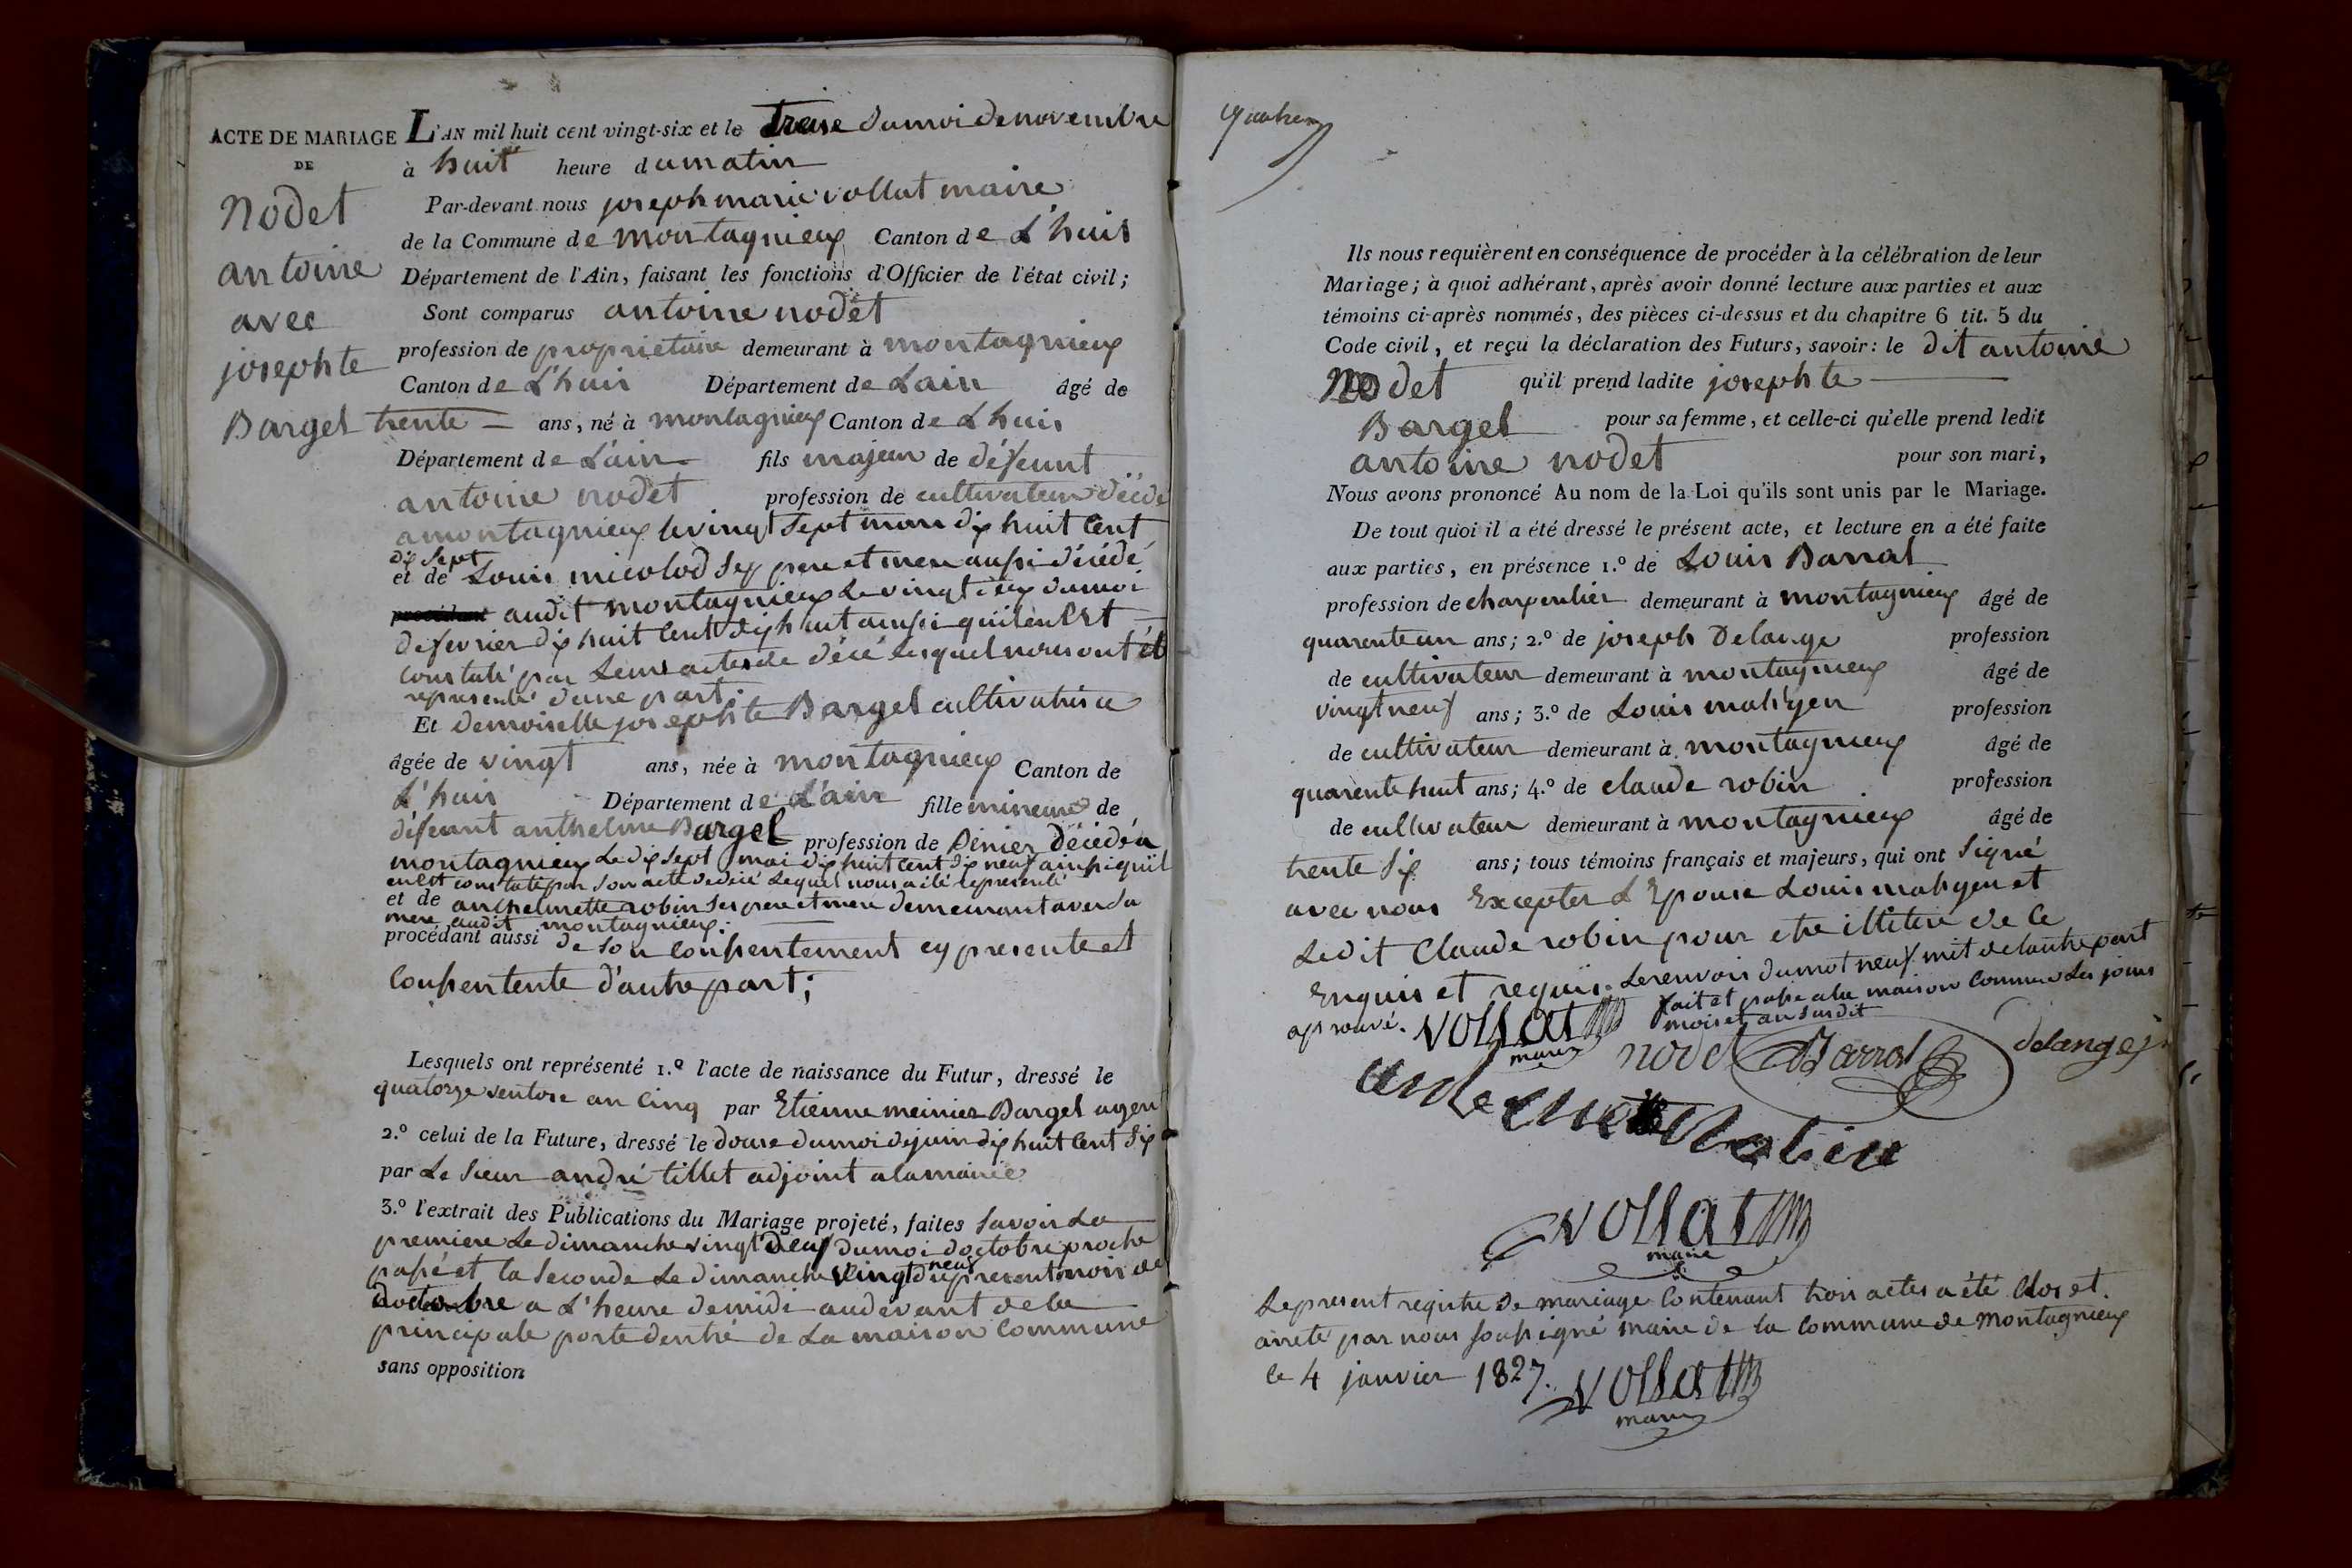 ACTE DE MARIAGE
DE
Nodet
antoine
avec
josephte
Bargel
L'AN mil huit cent vingt-six et le treise du moi de novembre
à huit heure du matin
Par-devant nous joseph marie vollat maire
de la Commune de montagnieux Canton de L'huis
Département de l'Ain, faisant les fonctions d'Officier de l'état civil;
Sont comparus antoine nodet
profession de propriétaire demeurant à montagnieux
Canton de L'huis Département de Lain âgé de
trente ans, né à montagnieux Canton de Lhuis
Département de L'ain fils majeur de défeunt
antoine nodet profession de cultivateur décéde
a montagnieux le vingt sept mars dix huit Cent
dix sept
et de Louise micolod ses pere et mere aussi décédé
audit montagnieux Le vingt deux du moi
de fevrier dix huit Cent dix huit ainsi quil en Est
Constaté par Leurs actes de décé lesquel nous ont été
representé d'une part.
Et demoiselle josephte Bargel cultivatrice
âgée de vingt ans, née à montagnieux Canton de
L'huis Département de L'ain fille mineure de
défeunt anthelme Bargel profession de Décédé a
montagnieux Le dix sept mai dix huit cent dix neuf ainsi qu'il
en Est constaté par son acte de décé Lequel nous a été representé
et de anthelmette robin ses pere et mere demeurant avec sa
mere audit montagnieux.
procédant aussi de son Consentement cy presente et
Consentente d'autre part;
Lesquels ont représenté 1.º l'acte de naissance du Futur, dressé le
quatorze ventose an Cinq par Etienne meinier Bargel agen
2.º celui de la Future, dressé le douse du moi de juin dix huit Cent six
par Le Sieur andré tillet adjoint a la mairie
3.º l'extrait des Publications du Mariage projeté, faites savoir La
premiere Le dimanche vingt deux du moi d'octobre proche
passé et la seconde Le dimanche vingt neuf present mois de
d'octobre a L'heure de midi audevant de la
principale porte dentré de La maison Commune
sans opposition
Ils nous requièrent en conséquence de procéder à la célébration de leur
Mariage; à quoi adhérant, après avoir donné lecture aux parties et aux
témoins ci-après nommés, des pièces ci-dessus et du chapitre 6 tit. 5 du
Code civil, et reçu la déclaration des Futurs, savoir: le dit antoine
Nodet qu'il prend ladite josephte
Bargel pour sa femme, et celle-ci qu'elle prend ledit
antoine nodet pour son mari,
Nous avons prononcé Au nom de la Loi qu'ils sont unis par le Mariage.
De tout quoi il a été dressé le présent acte, et lecture en a été faite
aux parties, en présence 1.º de Louis Barral
profession de charpentier demeurant à montagnieux âgé de
quarente un ans; 2.º de joseph Delange profession
de cultivateur demeurant à montagnieux âgé de
vingt neuf ans; 3.º de Louis mahigen profession
de cultivateur demeurant à montagnieux âgé de
quarente huit ans; 4.º de claude robin profession
de cultivateur demeurant à montagnieux âgé de
trente six ans; tous témoins français et majeurs, qui ont signé
avec nous Excepter L'Epouse Louis mahigen et
Ledit Claude robin pour etre illitere de Ce
Enquis et requis. Le renvoir du mot neuf mit de lautre part
aprouvé. fait et passé a la maison Commune Les jours
mois et an susdit
vollat
maire
nodet
Barral
delange j.
anthelmette Robin
vollat
maire
Le present registre de mariage Contenant trois actes a été Clos et
arreté par nous soussigné maire de la Commune de Montagnieux
le 4 janvier 1827.
vollat
maire